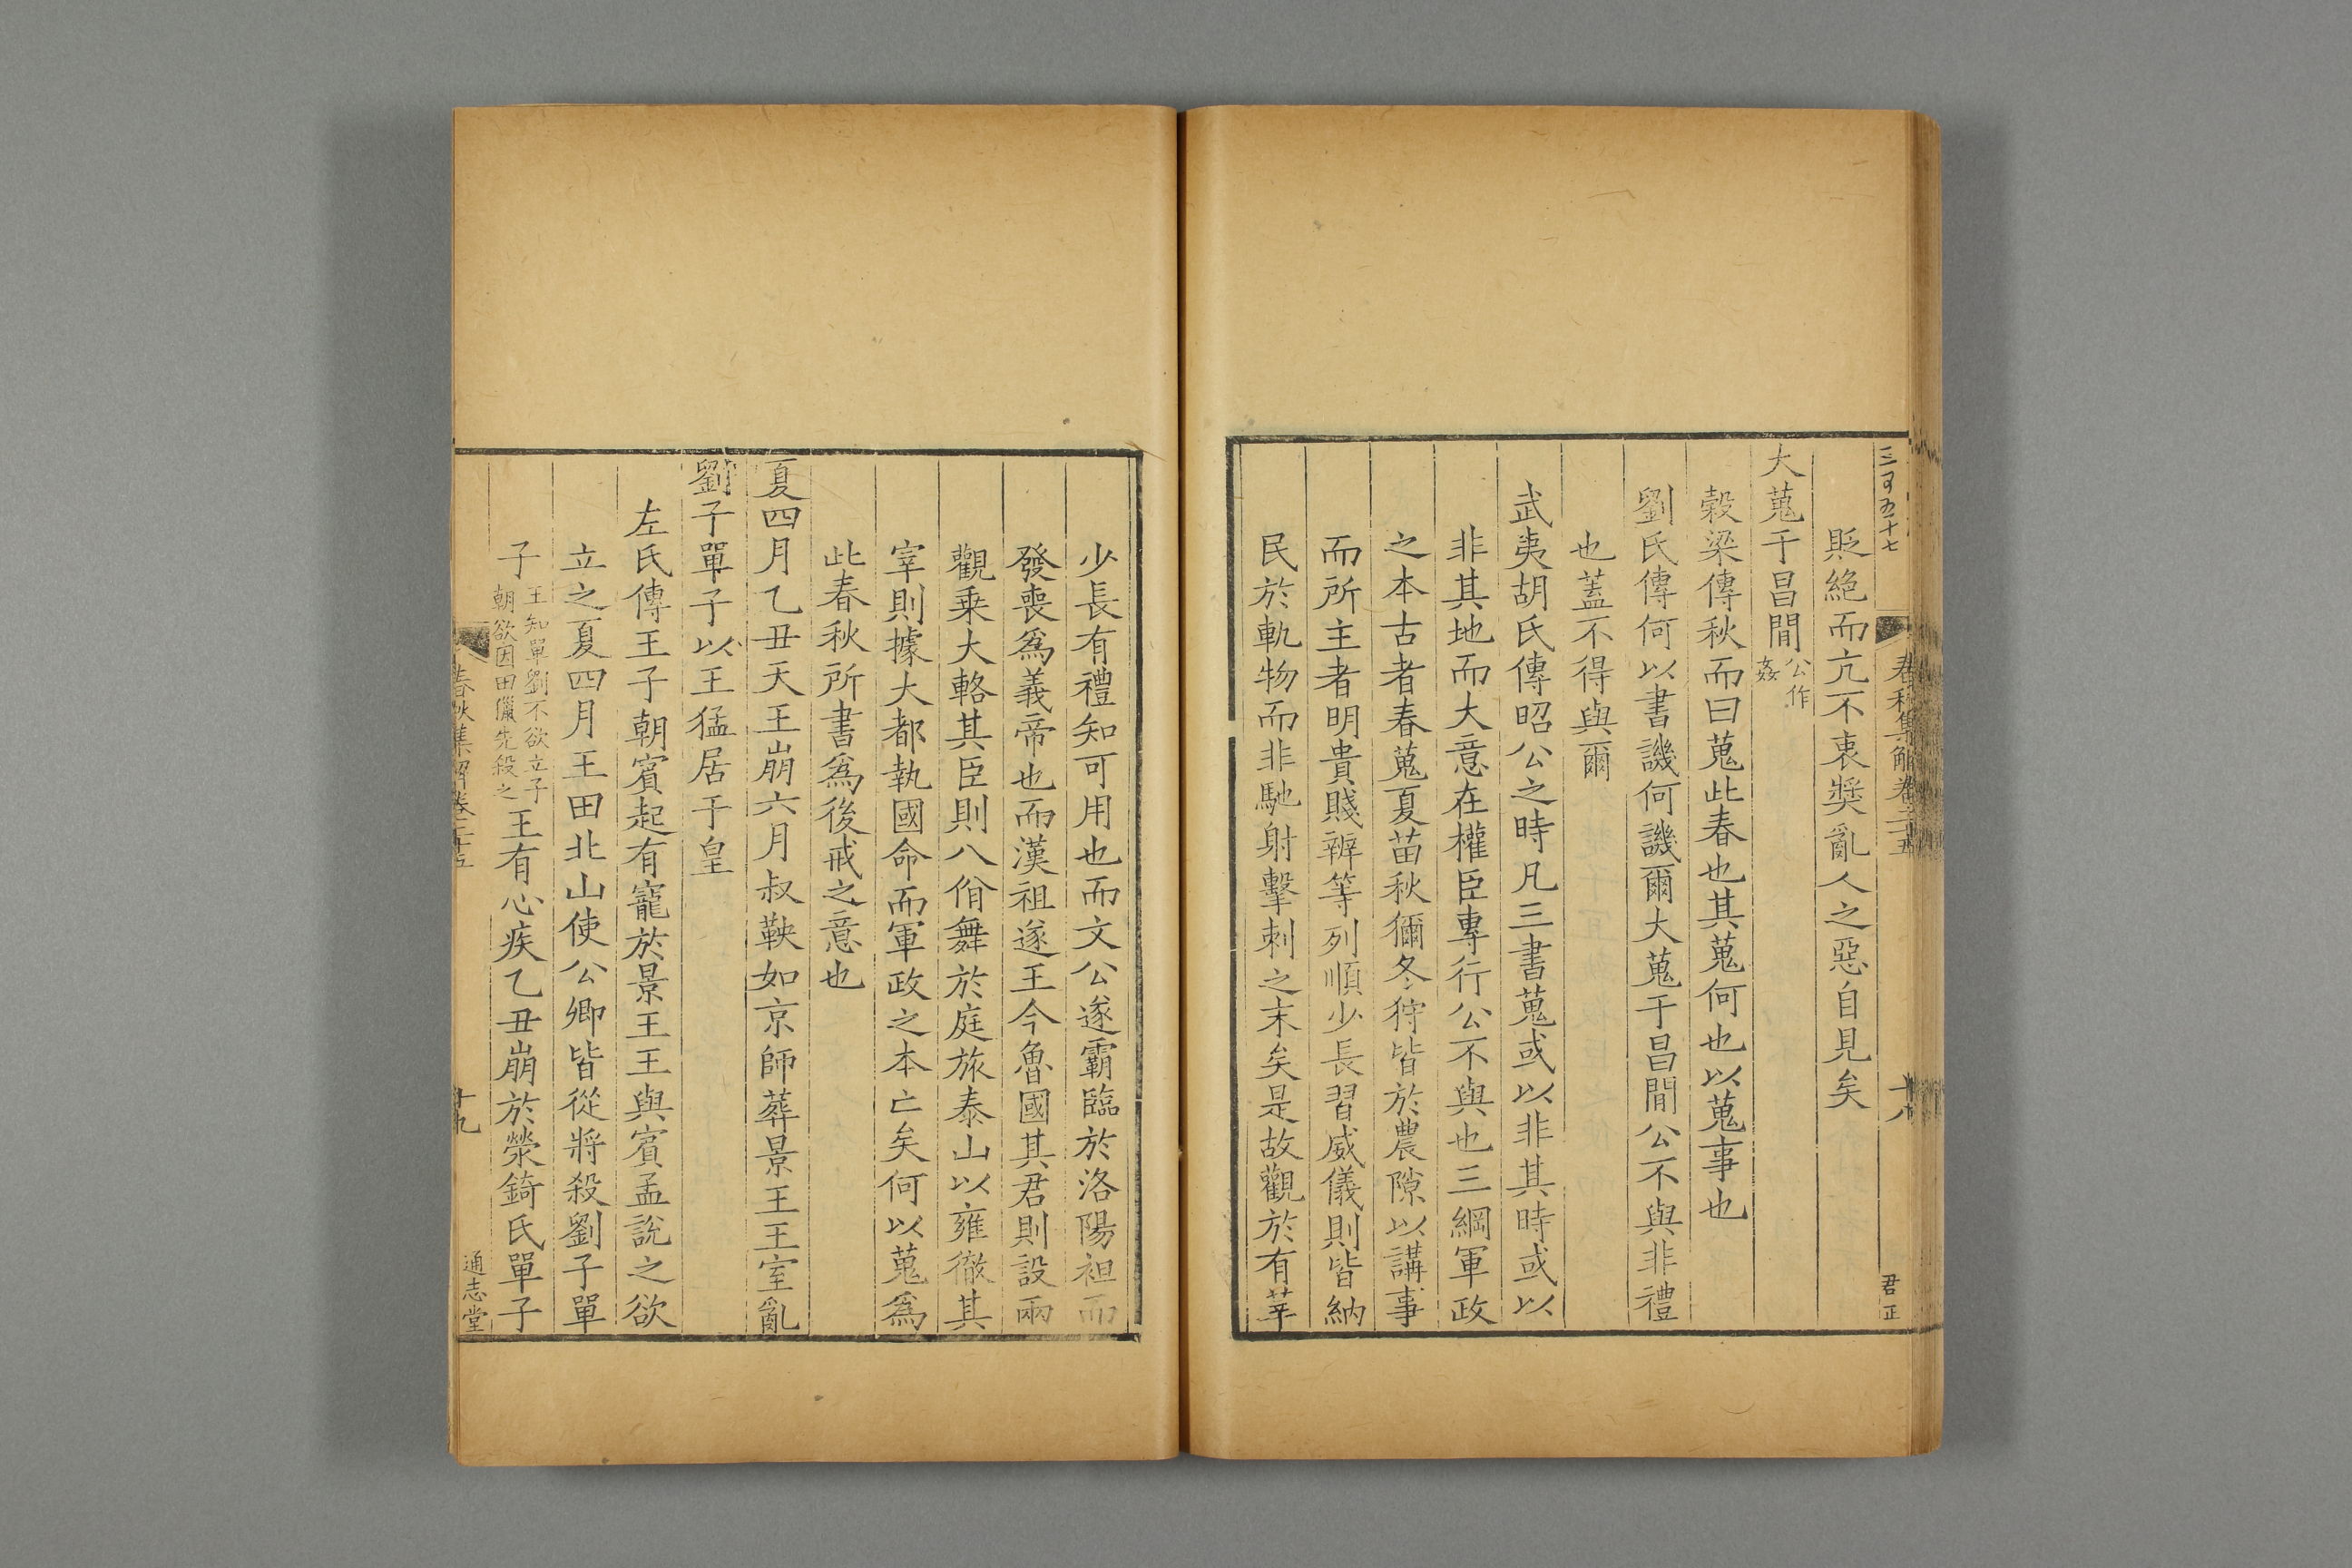 三百五十七
春秋集解卷二十五
十八
君正
貶絶而亢不衷奬亂人之惡自見矣
大蒐于昌間公作姦
穀梁傳秋而曰蒐此春也其蒐何也以蒐事也
劉氏傳何以書譏何譏爾大蒐于昌間公不與非禮
也蓋不得與爾
武夷胡氏傳昭公之時凡三書蒐或以非其時或以
非其地而大意在權臣專行公不與也三綱軍政
之本古者春蒐夏苗秋獮冬狩皆於農隙以講事
而所主者明貴賤辨等列順少長習威儀則皆納
民於軌物而非馳射擊刺之末矣是故觀於有莘
少長有禮知可用也而文公遂霸臨於洛陽袒而
發喪爲義帝也而漢祖遂王今魯國其君則設兩
觀乗大輅其臣則八佾舞於庭旅泰山以雍徹其
宰則據大都執國命而軍政之本亡矣何以蒐爲
此春秋所書爲後戒之意也
夏四月乙丑天王崩六月叔鞅如京師葬景王王室亂
劉子單子以王猛居于皇
左氏傳王子朝賓起有寵於景王王與賓孟說之欲
立之夏四月王田北山使公卿皆從將殺劉子單
子王知單劉不欲立子朝欲因田儠先殺之王有心疾乙丑崩於榮錡氏單子
春秋集解卷二十五
十九
通志堂